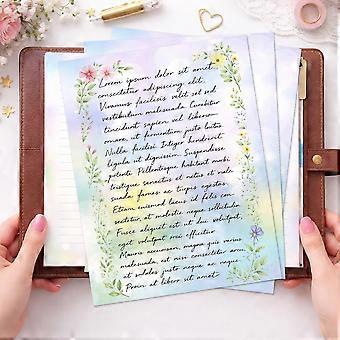 Lorem ipsum dolor sit amet
consectetur adipiscing elit.
Vivamus facilisis velit sed sed
vestibulum malesuada. Curabitur
tincidunt sapien vel libero
ornare, ut fermentum justo luctus
Nulla facilisi. Integer hendrerit
ligula ut dignissim. Suspendisse
potenti. Pellentesque habitant morbi
tristique senectus et netus et
suada fames ac turpis egestas.
Etiam euismod lacus id felis con
sectetur, at molestie neque sollicitudin
Fusce aliquet est ut dui volutpat,
eget volutpat orci efficitur
Mauris accumsan, magna quis varius
malesuada, est nisi consectetur
ut sodales justo neque ac neque.
Proin at libero sit amet